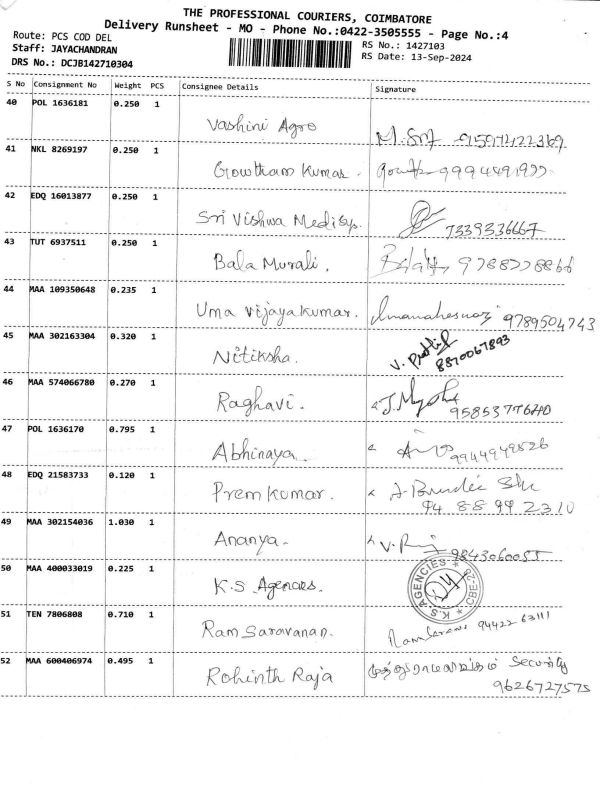 THE PROFESSIONAL COURIERS, COIMBATORE
Delivery Runsheet - MO - Phone No.:0422-3505555 - Page No.:4
Route: PCS COD DEL
RS No.: 1427103
Staff: JAYACHANDRAN
RS Date: 13-Sep-2024
DRS No.: DCJB142710304
S No Consignment No Weight PCS Consignee Details Signature
40 POL 1636181 0.250 1
Vashini Agro
41 NKL 8269197 0.250 1
Gowtham Kumar.
42 EDQ 16013877 0.250 1
Sri Vishwa 7339336667
43 TUT 6937511 0.250 1
Bala Murali. 9788778866
44 MAA 109350648 0.235 1
Uma Vijayakumar. 9789504743
45 MAA 302163304 0.320 1
Nitiksha. 8870067893
46 MAA 574066780 0.270 1
Raghavi.
47 POL 1636170 0.795 1
Abhinaya.
48 EDQ 21583733 0.120 1
Prem Kumar.
94 88 99 2310
49 MAA 302154036 1.030 1
Ananya. 9843060055
50 MAA 400033019 0.225 1
K.S Agences. K.S. AGENCIES
51 TEN 7806808 0.710 1
Ram Saravanan. 94422 63111
52 MAA 600406974 0.495 1
Rohinth Raja Security
9626727575